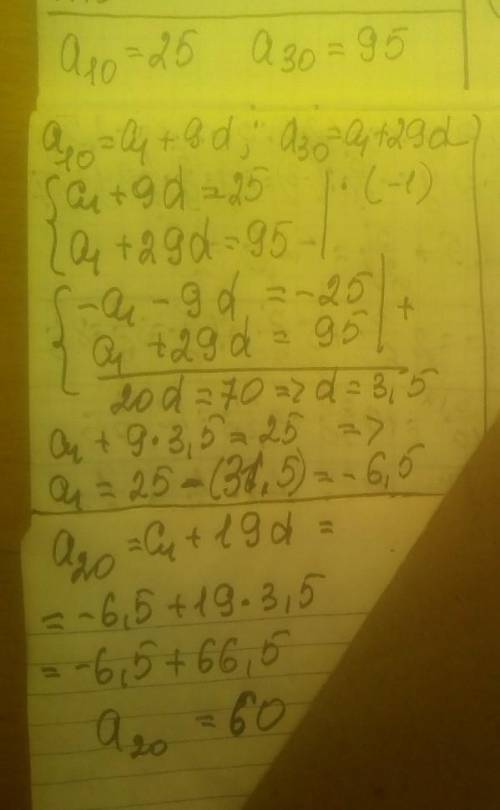 a₁₀ = 25 a₃₀ = 95
a₁₀ = a₁ + 9d; a₃₀ = a₁ + 29d
a₁ + 9d = 25 | · (-1)
a₁ + 29d = 95
-a₁ - 9d = -25 | +
a₁ + 29d = 95
20d = 70 => d = 3,5
a₁ + 9 · 3,5 = 25 =>
a₁ = 25 - (31,5) = -6,5
a₂₀ = a₁ + 19d =
= -6,5 + 19 · 3,5
= -6,5 + 66,5
a₂₀ = 60